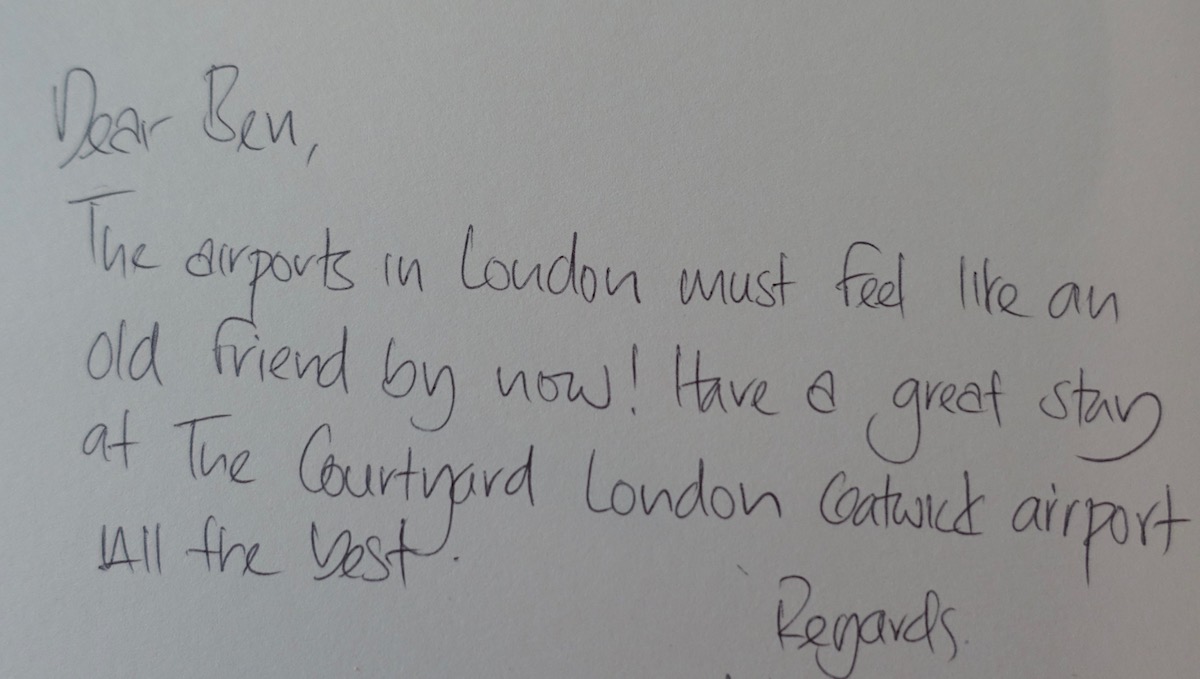 Dear Ben,
The airports in London must feel like an
old friend by now! Have a great stay
at The Courtyard London Gatwick airport
All the best.
Regards.